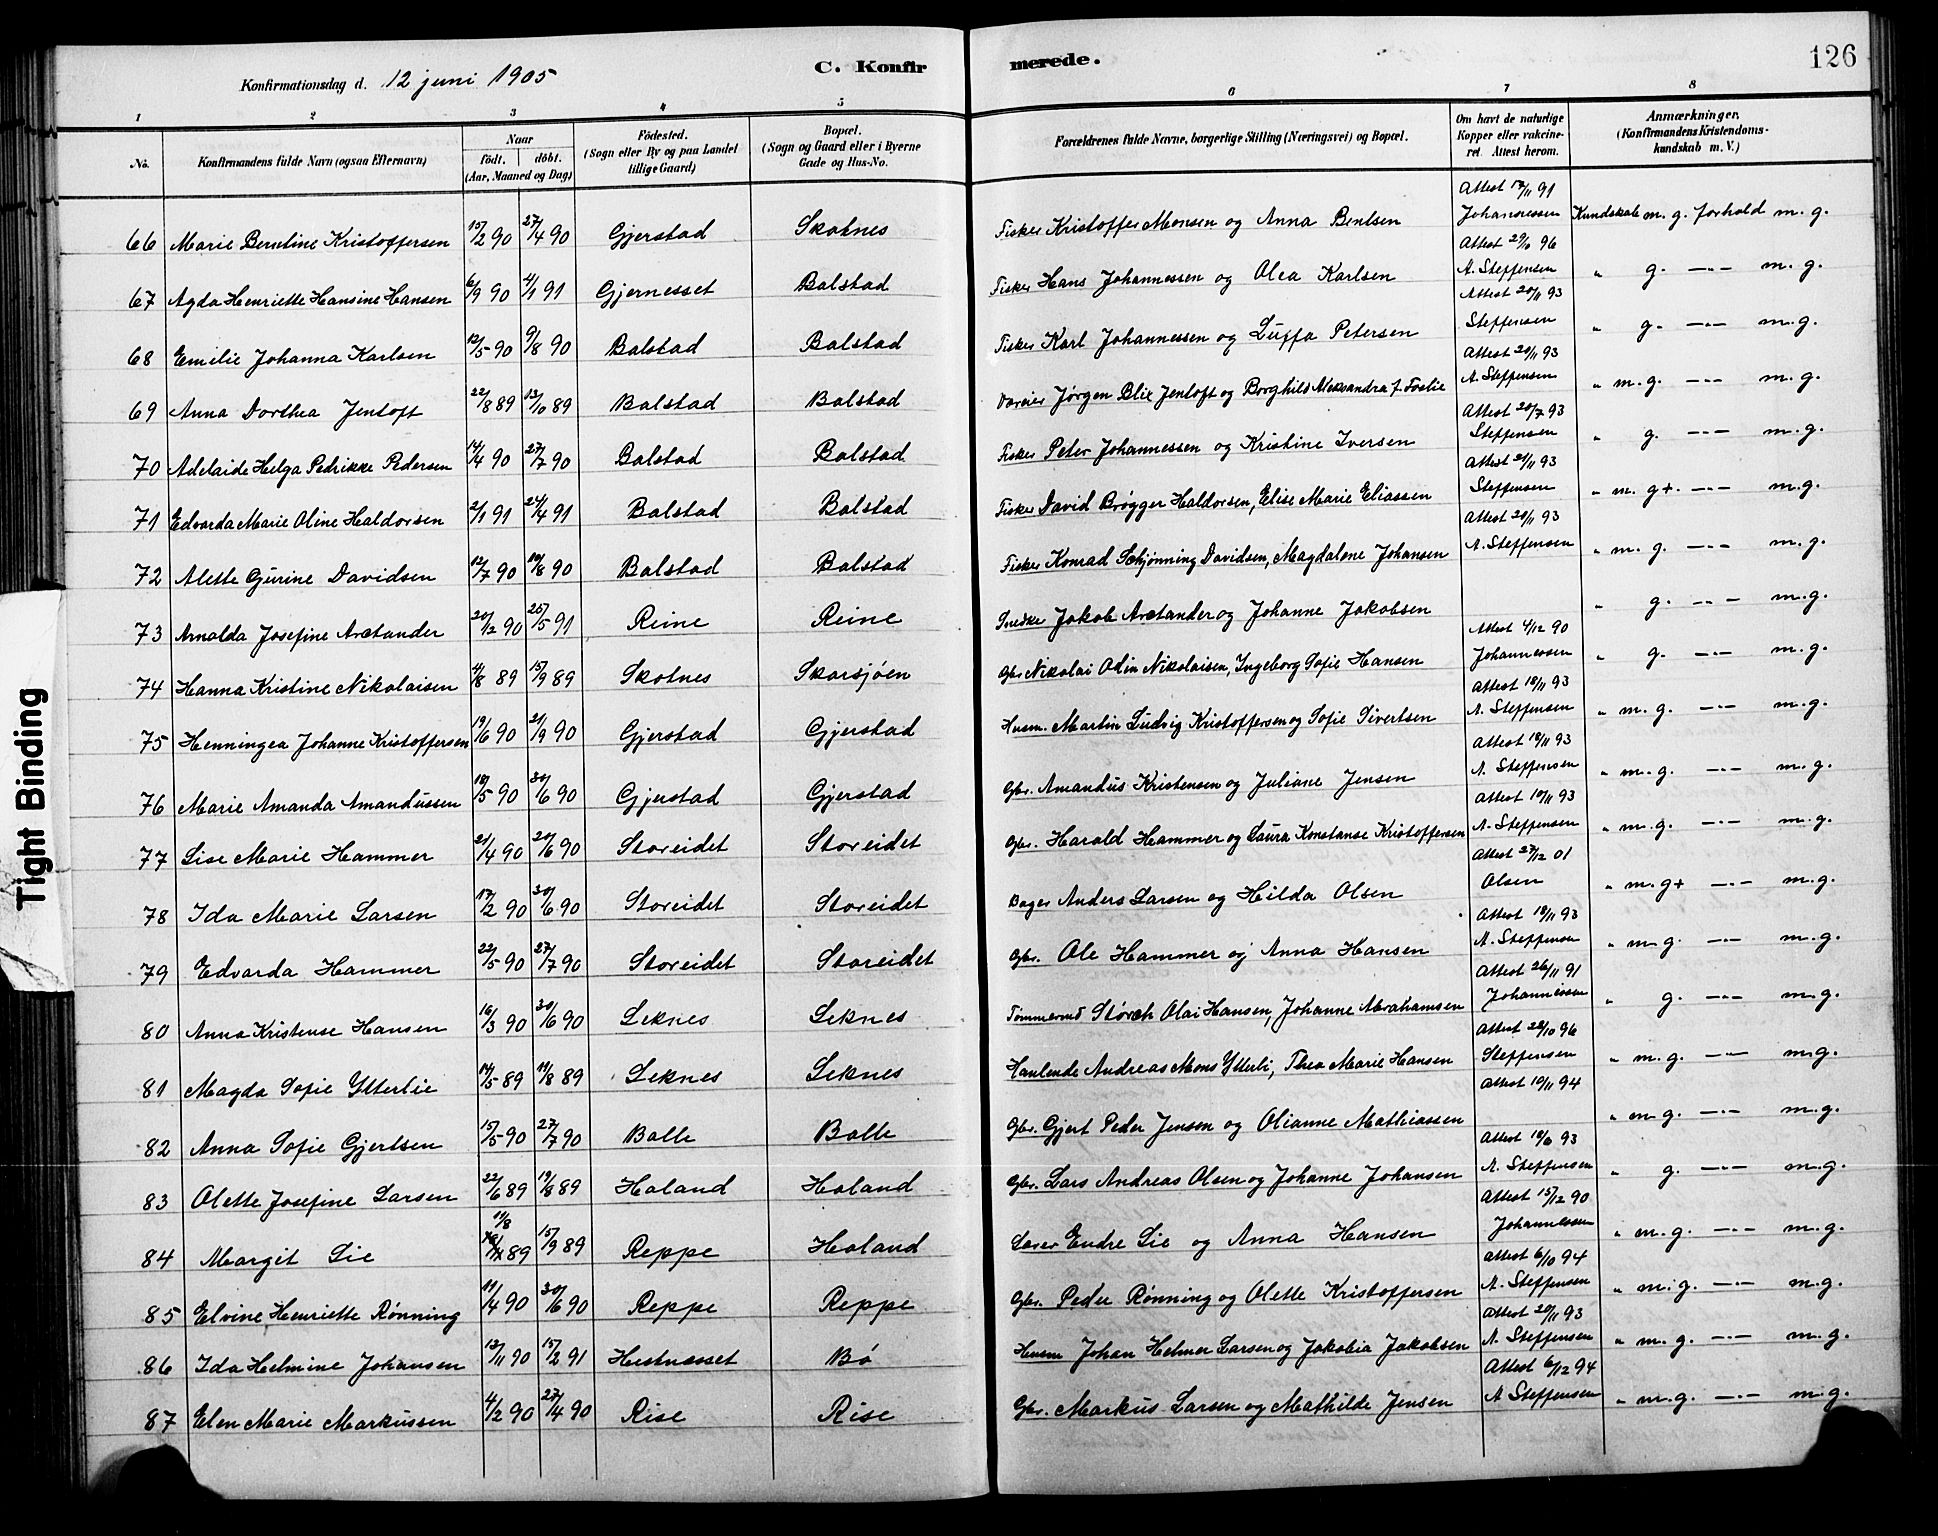 126
C. Konfirmerede.
Konfirmationsdag d. 12 juni 1905
1 2 3 4 5 6 7 8
No. Konfirmandens fulde Navn (ogsaa Efternavn) Naar født. døbt. (Aar, Maaned og Dag) Fødested. (Sogn eller By og paa Landet tillige Gaard) Bopæl. (Sogn og Gaard eller i Byerne Gade og Hus-No. Forældrenes fulde Navne, borgerlige Stilling (Næringsvei) og Bopæl. Om havt de naturlige Kopper eller vakcineret. Attest herom. Anmærkninger. (Konfirmandens Kristendomskundskab m. V.)
66 Marie Berntine Kristoffersen 15/2 90 27/4 90 Gjerstad Skotnes Fisker Kristoffer Monsen og Anna Bentsen Attest 17/11 91 Johannessen Kundskab m. g. forhold m. g.
67 Agda Henriette Hansine Hansen 6/9 90 4/1 91 Gjernesset Balstad Fisker Hans Johannessen og Olea Karlsen Attest 29/10 96 A. Steffensen " g. —"— m. g.
68 Emilie Johanna Karlsen 12/5 90 9/8 90 Balstad Balstad Fisker Karl Johannessen og Luffa Petersen Attest 20/11 93 Steffensen " g. —"— m. g.
69 Anna Dorthea Jentoft 22/8 89 12/10 89 Balstad Balstad Væreier Jørgen Blix Jentoft og Borghild Aleksandra f. Foslie Attest 20/11 93 A. Steffensen " m. g. —"— m. g.
70 Adelaide Helga Pedrikke Pedersen 14/4 90 27/7 90 Balstad Balstad Fisker Peter Johannessen og Kristine Iversen Attest 20/7 93 Steffensen " g. —"— m. g.
71 Edvarda Marie Oline Haldorsen 2/1 91 24/4 91 Balstad Balstad Fisker David Brøgger Haldorsen, Elise Marie Eliassen Attest 21/11 93 Steffensen " m. g+. —"— m. g.
72 Alette Gjurine Davidsen 12/7 90 10/8 90 Balstad Balstad Fisker Konrad Schjønning Davidsen, Magdalone Johansen Attest 20/11 93 A. Steffensen " m. g. —"— m. g.
73 Arnalda Josefine Arctander 20/12 90 25/5 91 Reine Reine Snedker Jakob Arctander og Johanne Jakobsen " g. —"— m. g.
74 Hanna Kristine Nikolaisen 4/8 89 15/9 89 Skotnes Skarsjøen Gbr. Nikolai Odin Nikolaisen, Ingeborg Sofie Hansen Attest 4/12 90 Johannessen " g. —"— m. g.
75 Henningea Johanne Kristoffersen 19/6 90 21/9 90 Gjerstad Gjerstad Husm. Martin Ludvig Kristoffersen og Sofie Sivertsen Attest 18/11 93 A. Steffensen " m. g. —"— m. g.
76 Marie Amanda Amandussen 18/5 90 30/6 90 Gjerstad Gjerstad Gbr. Amandus Kristensen og Juliane Jensen Attest 18/11 93 A. Steffensen " m. g. —"— m. g.
77 Lise Marie Hammer 21/4 90 20/6 90 Storeidet Storeidet Gbr. Harald Hammer og Laura Konstanse Kristoffersen Attest 18/11 93 A. Steffensen " m. g. —"— m. g.
78 Ida Marie Larsen 17/2 90 30/6 90 Storeidet Storeidet Bager Anders Larsen og Hilda Olsen Attest 27/12 01 Olsen " m. g+ —"— m. g.
79 Edvarda Hammer 22/5 90 27/7 90 Storeidet Storeidet Gbr. Ole Hammer og Anna Hansen Attest 18/11 93 A. Steffensen " m. g. —"— m. g.
80 Anna Kristense Hansen 16/3 90 30/6 90 Leknes Leknes Tømmermd Størch Olai Hansen, Johanne Abrahamsen Attest 26/11 91 Johannessen " g. —"— m. g.
81 Magda Sofie Ytterlie 14/5 89 11/8 89 Leknes Leknes Hanlende Andreas Mons Ytterli, Thea Marie Hansen Attest 28/10 96 Steffensen " m. g. —"— m. g.
82 Anna Sofie Gjertsen 15/5 90 27/7 90 Balle Balle Gbr. Gjert Peder Jensen og Olianne Mathiassen Attest 10/11 94 " m. g. —"— m. g.
83 Olette Josefine Larsen 22/6 89 19/8 89 Holand Holand Gbr. Lars Andreas Olsen og Johanne Johansen Attest 18/6 93 A. Steffensen " g. —"— m. g.
84 Margit Lie 11/8 89 15/9 89 Reppe Holand Lærer Endre Lie og Anna Hansen Attest 15/12 90 Johannessen " m. g. —"— m. g.
85 Elvine Henriette Rønning 11/4 90 30/6 90 Reppe Reppe Gbr. Peder Rønning og Olette Kristoffersen Attest 6/10 94 A. Steffensen " m. g. —"— m. g.
86 Ida Helmine Johansen 13/11 90 15/2 91 Hestnæsset Bø Husm Johan Helmer Larsen og Jakobia Jakobsen Attest 20/11 93 A. Steffensen " m. g. —"— m. g.
87 Elen Marie Markussen 4/2 90 27/4 90 Rise Rise Gbr. Markus Larsen og Mathilde Jensen Attest 6/12 94 A Steffensen " m. g. —"— m. g.
Tight Binding